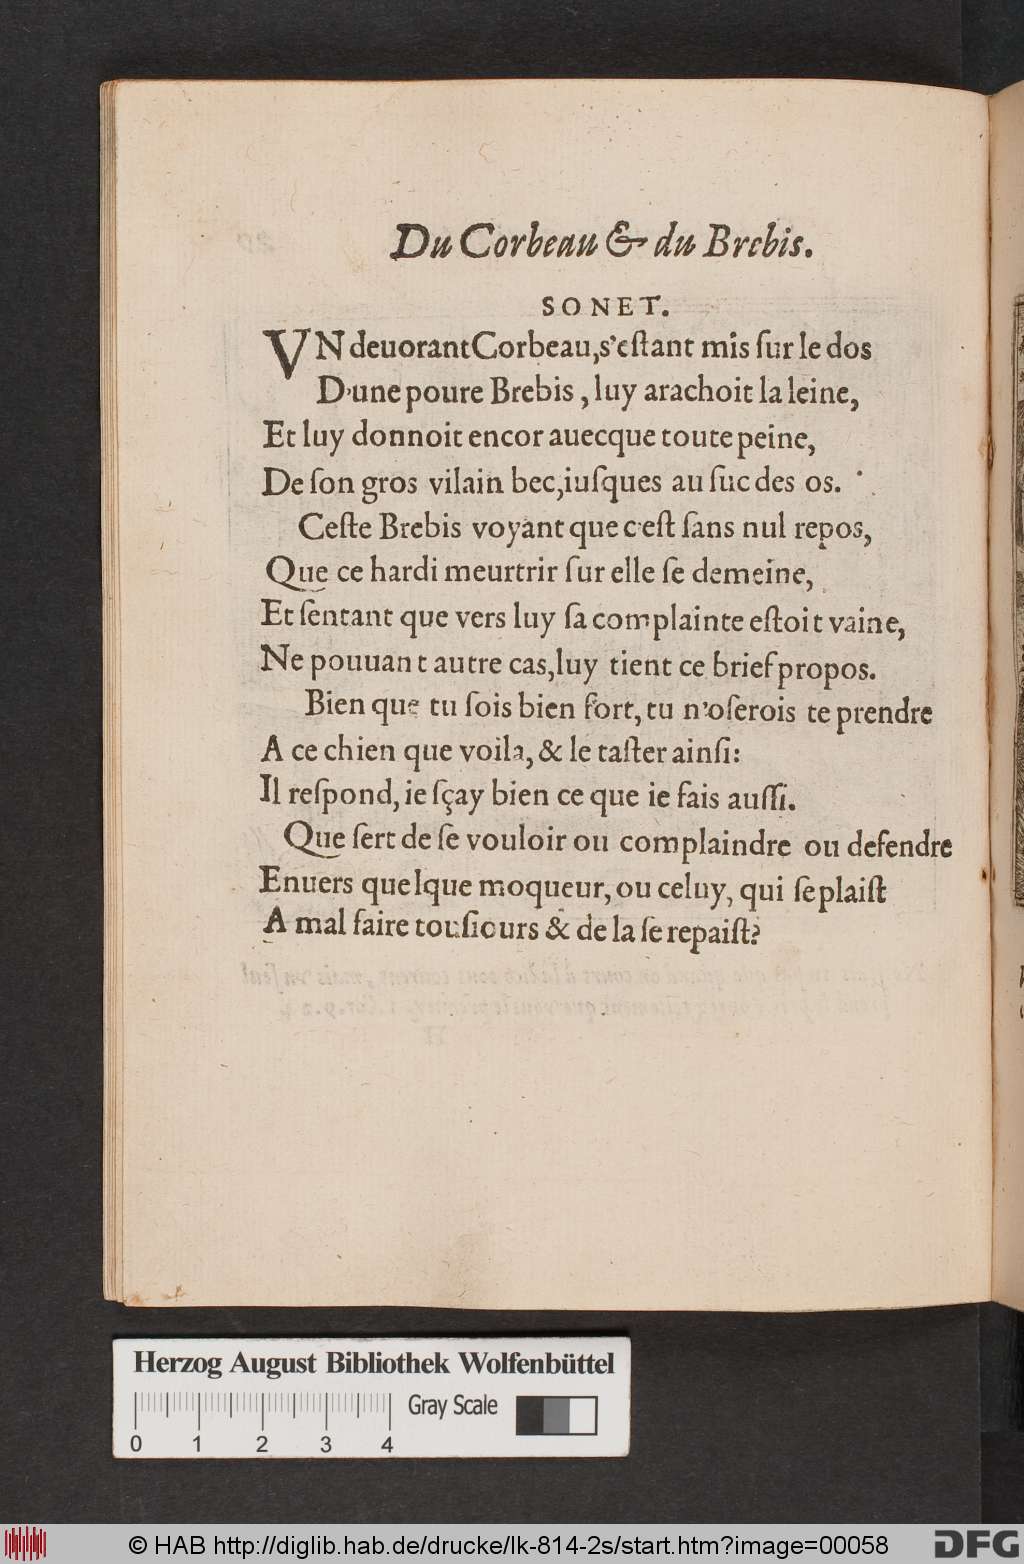 Du Corbeau & du Brebis.
SONET.
VN deuorant Corbeau, s'eſtant mis ſur le dos
D'une poure Brebis, luy arachoit la leine,
Et luy donnoit encor auecque toute peine,
De ſon gros vilain bec, iuſques au ſuc des os.
Ceſte Brebis voyant que c'eſt ſans nul repos,
Que ce hardi meurtrir ſur elle ſe demeine,
Et ſentant que vers luy ſa complainte eſtoit vaine,
Ne pouuant autre cas, luy tient ce brief propos.
Bien que tu ſois bien fort, tu n'oſerois te prendre
A ce chien que voila, & le taſter ainſi:
Il reſpond, ie ſçay bien ce que ie fais auſſi.
Que ſert de ſe vouloir ou complaindre ou defendre
Enuers quelque moqueur, ou celuy, qui ſe plaiſt
A mal faire touſiours & de la ſe repaiſt?
Herzog August Bibliothek Wolfenbüttel
Gray Scale
0 1 2 3 4
© HAB http://diglib.hab.de/drucke/lk-814-2s/start.htm?image=00058
DFG